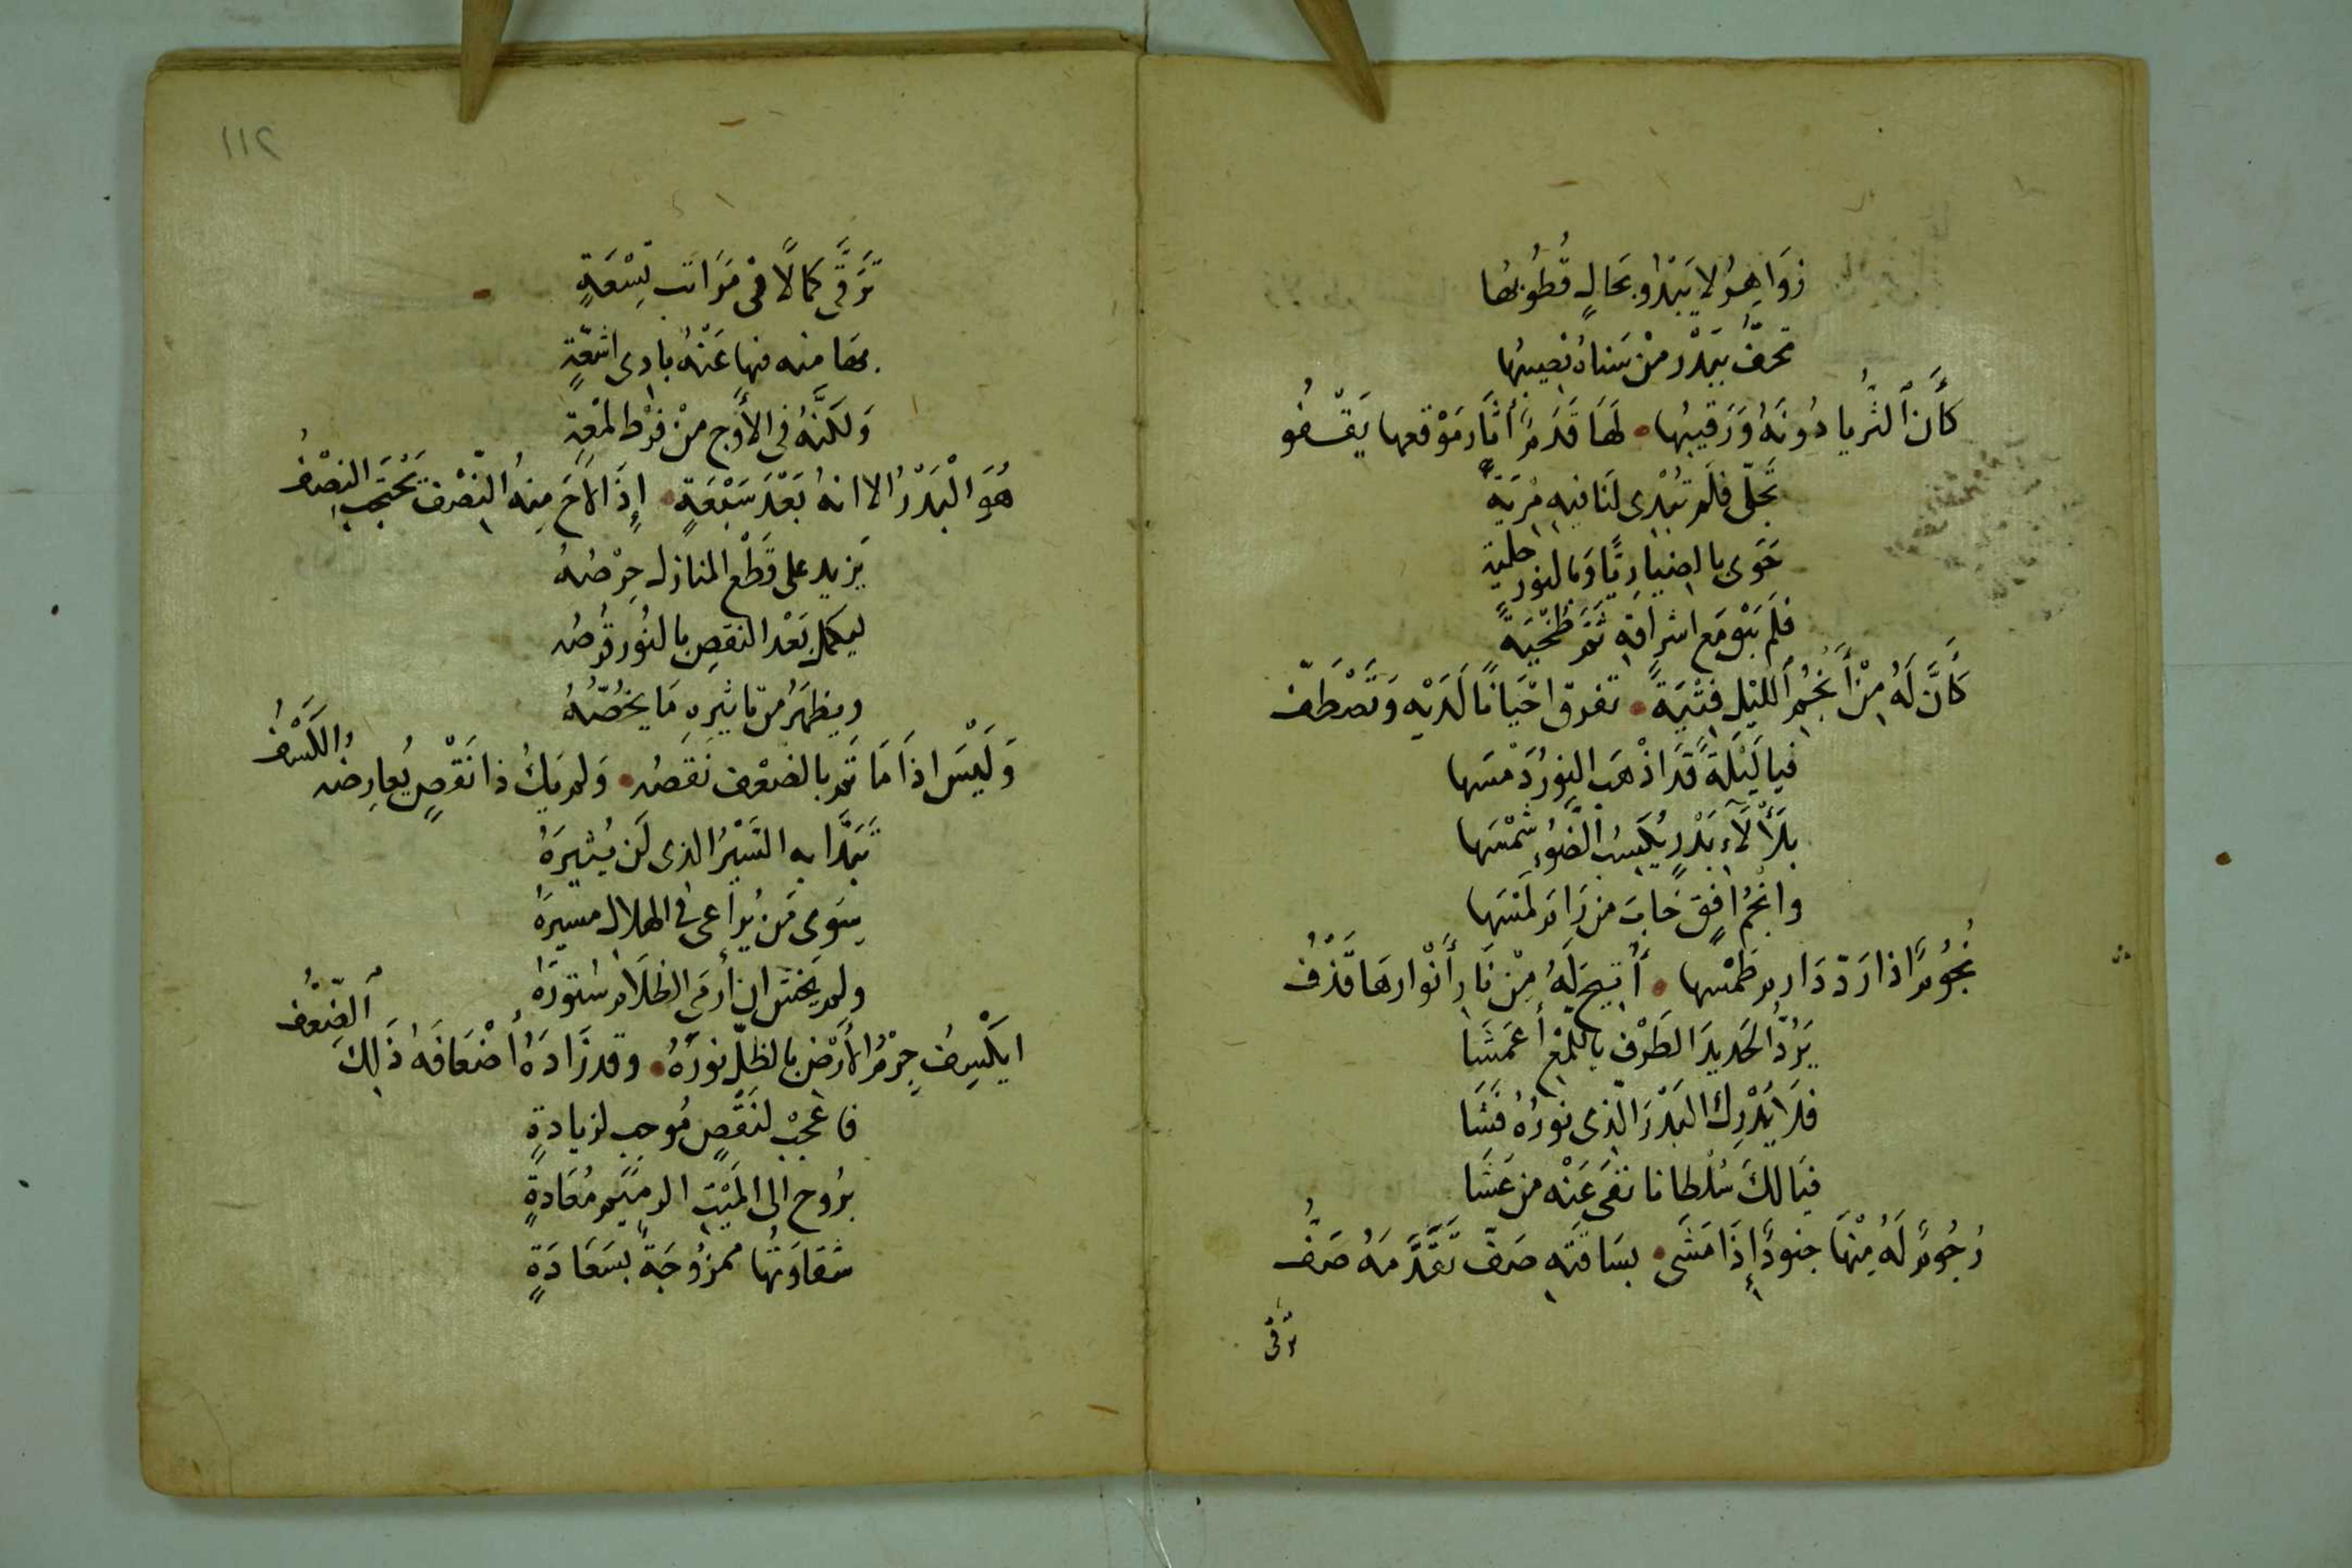 زَوَاهِرُ لا يَبْدُو بحَالٍ قُطُوبُها
تحُفُّ ببَدْر مِنْ سَناهُ نصِيبُها
كأَنَّ الثُّريا دُونَهُ وَرَقيبُها • لَهَا قَدَمٌ أثَارَ مَوْقعها يَقْفُو
تجَلّى فلَم تُبْدى لنا فيه مُريَةً
حَوَى بالضيا رِيًّا وَبالنور حليةً
فلم يَبْقَ مَع اشراقهِ ثَمَّ ظخْيَةً
كأَنَّ لَهُ مِنْ أَنْجُم اللَيْل فِتْيَةً • تفرق احْيَانًا لَدَيْه وَتَصْطَفّ
فيا لَيْلَةً قَد اذْهَبَ النورُ دَمْسَها
بلَأْلَآءِ بَدْرٍ يُكسِبُ الضَّوْءِ شَمْسَها
وانجُمُ افقٍ خابَ مَن رَامَ لَمْسَها
نُجُومٌ اذا رَدّ دَارِم طَمْسها • أُتيحَ لَهُ مِنْ نَارِ أَنْوارهَا قَذْفُ
يَرُدُّ الحَديدَ الطَرْفِ باللّمْعِ أعمَشَا
فلَا يُدْرِك البَدْرَ الّذي نورُهُ فَشَا
فيَا لكَ سُلْطانا نفَى عَنْه مَن عَشَا
رُجُومٌ لَهُ مِنْهَا جنودٌ إِذَا مَشَى • بسَاقَتهِ صَفّ تَقَدَّمَهُ صَفُّ
ترقى
١١٢
تَرَقَّى كمالًا فى مَرَاتب تِسْعَةٍ
بها منه فيها عَنْهُ بادى اشعّةٍ
وَلكنَّهُ في الأوج مِنْ فرْط لمْعةٍ
هُوَ الْبَدْرُ الا انهُ بَعْدَ سَبْعَةٍ • إذَا لاحَ مِنهُ النِّصْف يَحْتَجِبُ النصْفُ
يَزيد على قَطْع المنازل حِرْصُهُ
ليكمل بَعْد النقصِ بالنُور قُرصُه
ويظهَرُ من تاثيرهِ مَا يخُصّهُ
وَلَيْسَ اذَا مَا تَمّ بالضعْف نقصُه • وَلم يَكُ ذا نَقْصٍ يُعارِضه الكَسْفُ
تَبَدَّا به السَيْرُ الذى لَن يُثيرَهُ
سِوى مَن يُراعى في الهلال مسيرَهُ
ولم يَخْشَ ان أرمَى الظلَام سُتورَهُ
ايكْسِفُ جِرْمُ الأَرْض بالظلّ نورَهُ • وقد زَادَهُ أضْعَافَهُ ذَلِكَ الضِّعْفُ
فاعْجَبْ لنَقْصٍ مُوجب لزيادةٍ
برُوح إلى المَيْتِ الرميمِ مُعَادةٍ
شقاوَتُها ممزُوجَةٌ بسَعَادَةٍ